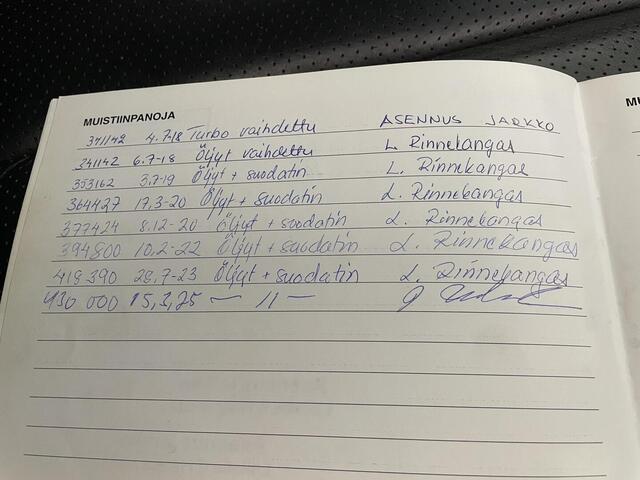 MUISTIINPANOJA
MU
341142 4.7-18 Turbo vaihdettu ASENNUS JARKKO
341142 6.7-18 Öljyt vaihdettu L. Rinnekangas
353162 3.7-19 Öljyt + suodatin L. Rinnekangas
364427 17.3-20 Öljyt + suodatin L. Rinnekangas
377424 8.12-20 Öljyt + suodatin L. Rinnekangas
394800 10.2-22 Öljyt + suodatin L. Rinnekangas
418390 28.7-23 Öljyt + suodatin L. Rinnekangas
430 000 15,3,25 — 11 —